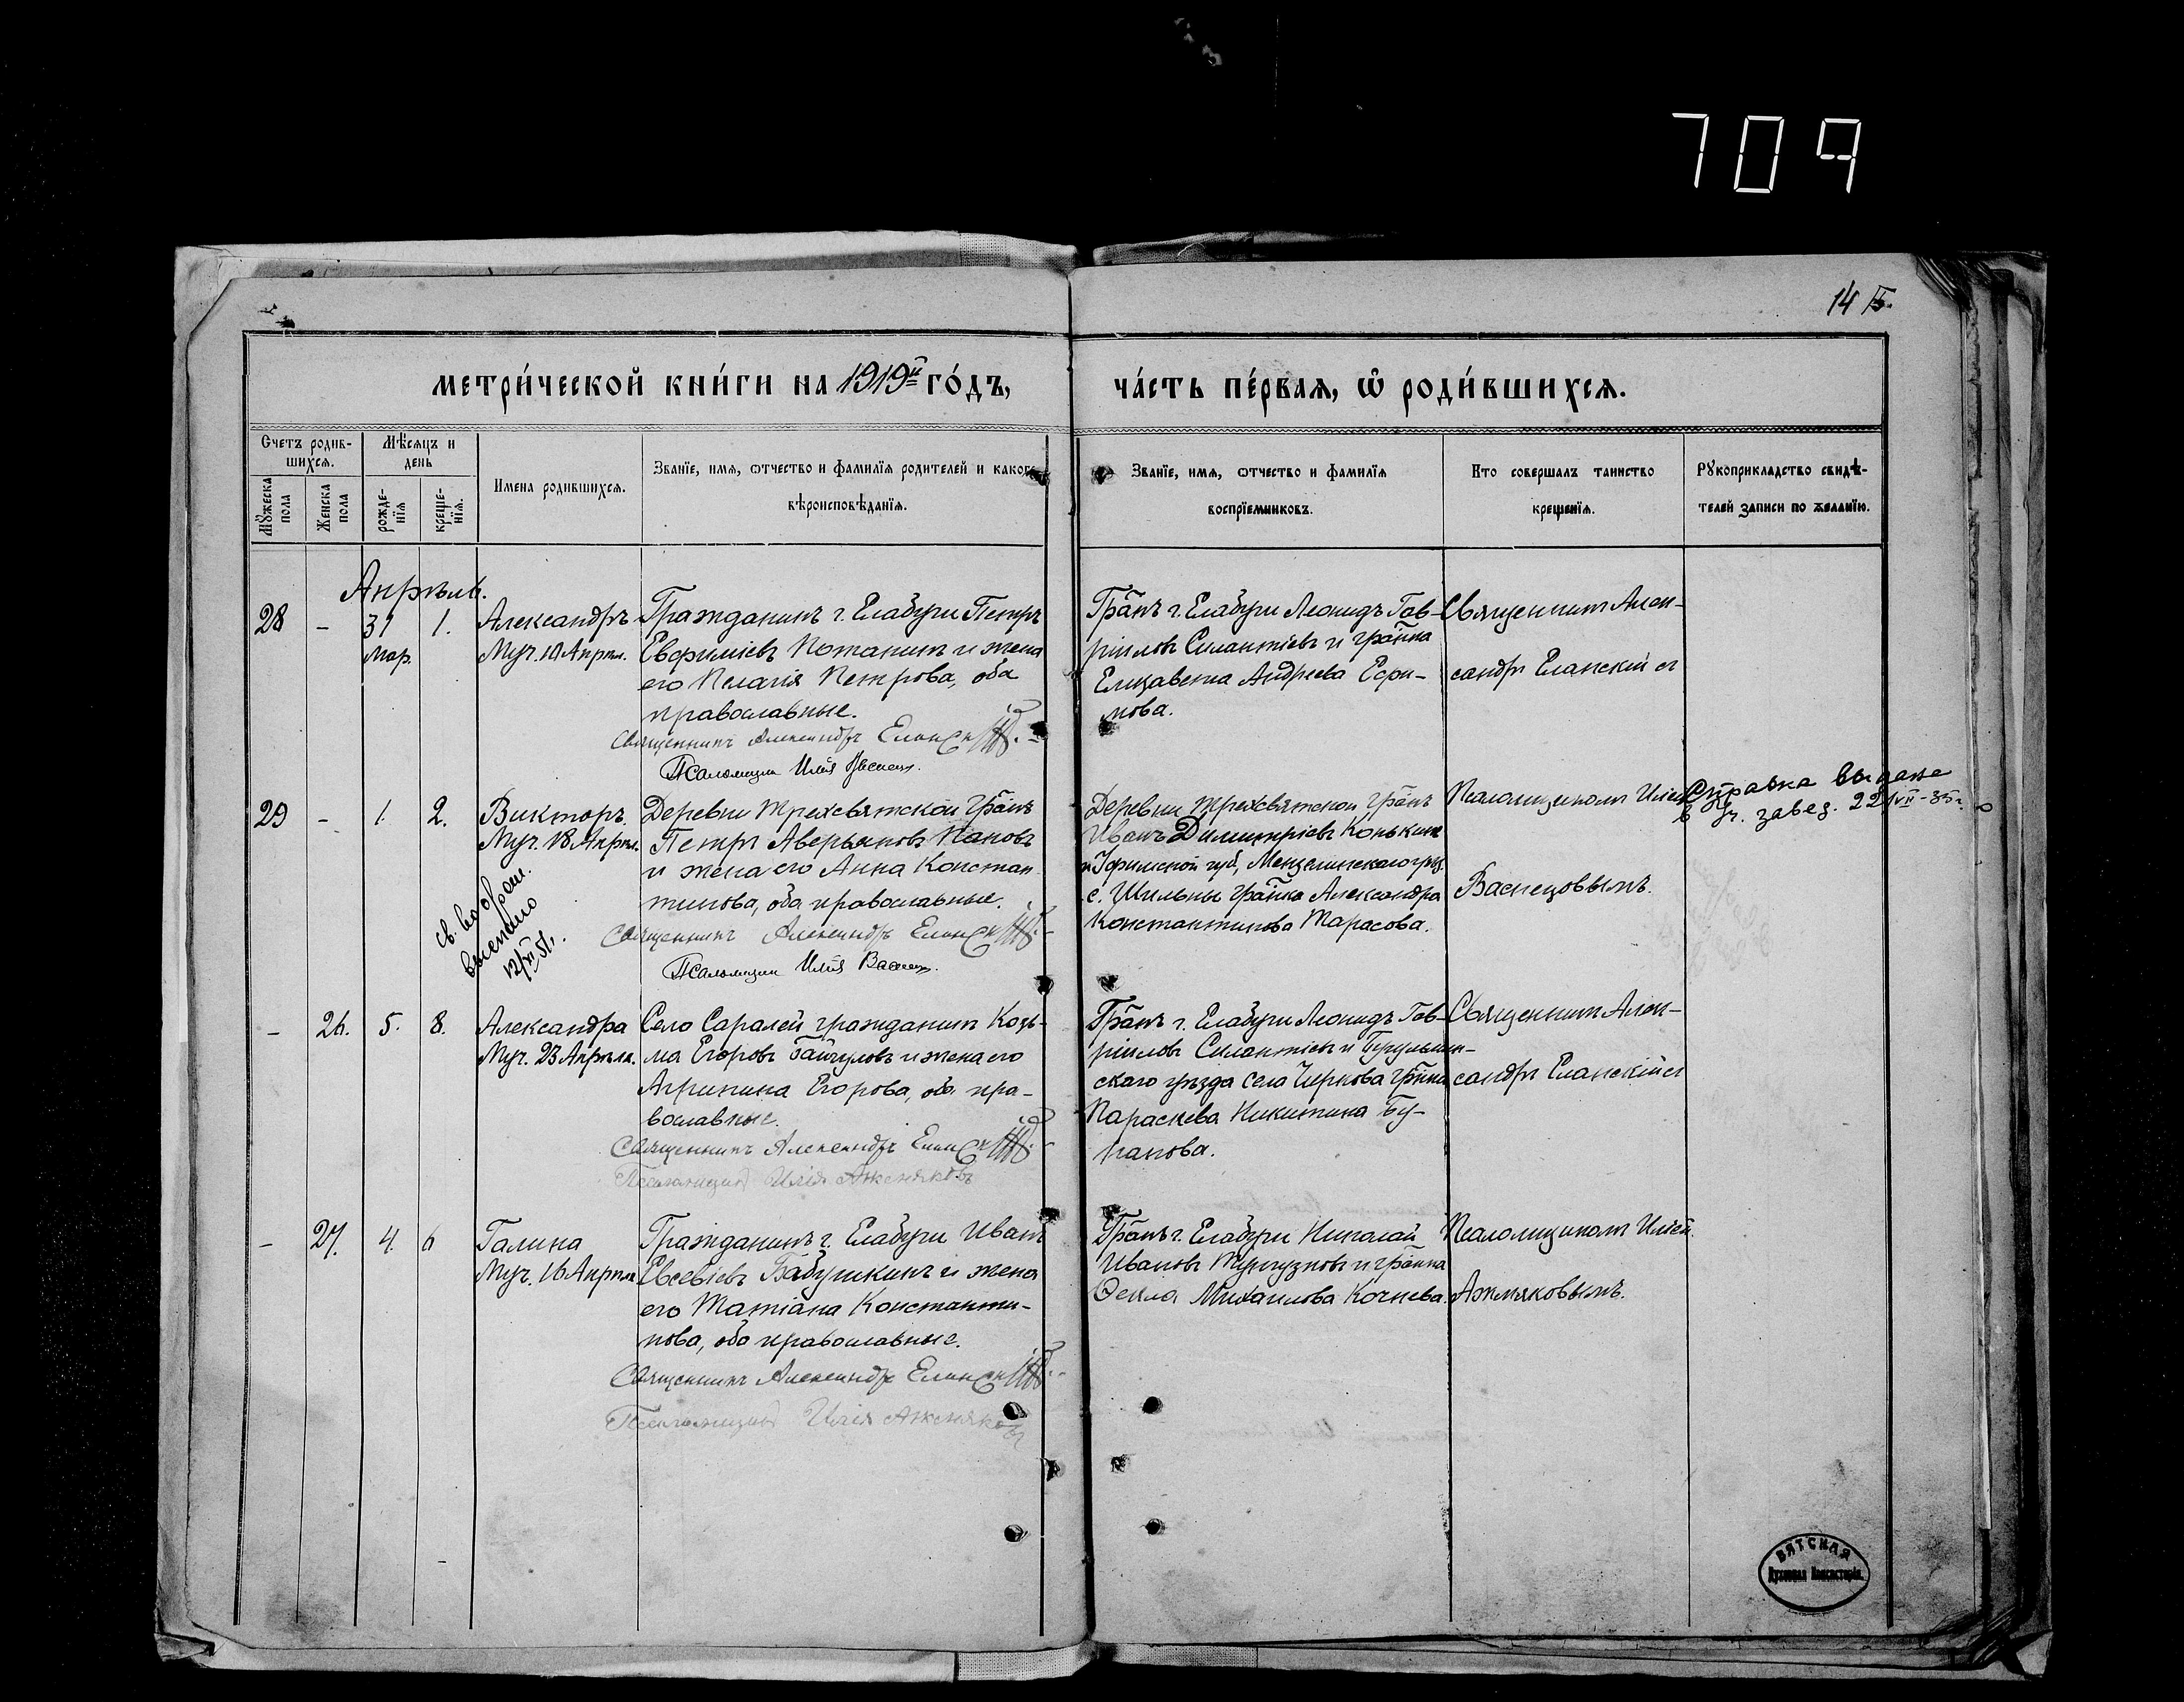 709
14
метрической книги на 1919й годъ,
часть первая, ѡ родившихся.
Счетъ родив-
шихся.
Мѣсяцъ и
день
Мужеска
пола
Женска
пола
рожде-
нїя
креще-
нїя.
Имена родившихся.
Званїе, имя, ѡтчество и фамилїя родителей и какого
вѣроисповѣданїя.
Званїе, имя, ѡтчество и фамилїя
воспрїемниковъ.
Кто совершалъ таинство
крещенїя.
Рукоприкладство свидѣ-
телей записи по желанїю.
Апрѣль.
28 – 31 1. Александръ
Мар. Муч. 10 Апрѣл.
Гражданинъ г. Елабуги Петръ
Евфиміевъ Потанинъ и жена
его Пелагія Петрова, оба
православные.
Священникъ Александръ Еланскій.
Псаломщик Илія Васнец.
Гранъ г. Елабуги Леонидъ Гав-
ріиловъ Силантіевъ и гранка
Елизавета Андреева Ефи-
мова.
Священник Алек-
сандръ Еланскій съ
29 – 1. 2. Викторъ.
Муч. 18 Апрѣл.
Деревни Трехсвятской гранъ
Петръ Аверьяновъ Пановъ
и жена его Анна Констан
тинова, оба православные.
Священникъ Александръ Еланскій.
Псаломщик Илія Васнец.
св. во брак.
выслано
12/XI 51.
Деревни Трехсвятской гранъ
Иванъ Димитріевъ Конькинъ
и Уфимской губ., Мензелинскаго уѣз.
с. Шильны гранка Александра
Константинова Тарасова.
Псаломщиком Иліей
Васнецовымъ.
Справка выдана
в Уч. завед. 22/VII-35 г.
– 26. 5. 8. Александра
Муч. 23 Апрѣля.
Село Саралей гражданин Козь-
ма Егоровъ Байгуловъ и жена его
Агрипина Егорова, оба пра-
вославные.
Священникъ Александръ Еланскій.
Псаломщикъ Илія Ажмяковъ
Гранъ г. Елабуги Леонидъ Гав-
ріиловъ Силантіевъ и Бугульмин-
скаго уѣзда села Чиркова гранка
Параскева Никитина Бу-
ганова.
Священник Алек-
сандръ Еланскій съ
– 27. 4. 6 Галина
Муч. 16 Апрѣля
Гражданинъ г. Елабуги Иванъ
Евсевіевъ Бабушкинъ и жена
его Татіана Константи-
нова, оба православные.
Священникъ Александръ Еланскій.
Псаломщикъ Илія Ажмяковъ
Гранъ г. Елабуги Николай
Ивановъ Тунгузковъ и гранка
Ѳекла Михаилова Кочнева.
Псаломщиком Иліей
Ажмяковымъ.
ВЯТСКАЯ
Духовная Консисторія.